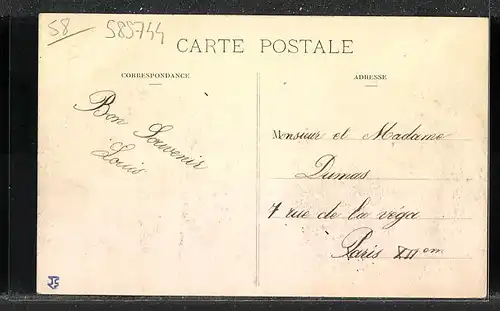 58/ 585744
CARTE POSTALE
CORRESPONDANCE
ADRESSE
Bon Souvenir
Louis
Monsieur et Madame
Dumas
7 rue de la véga
Paris XII em